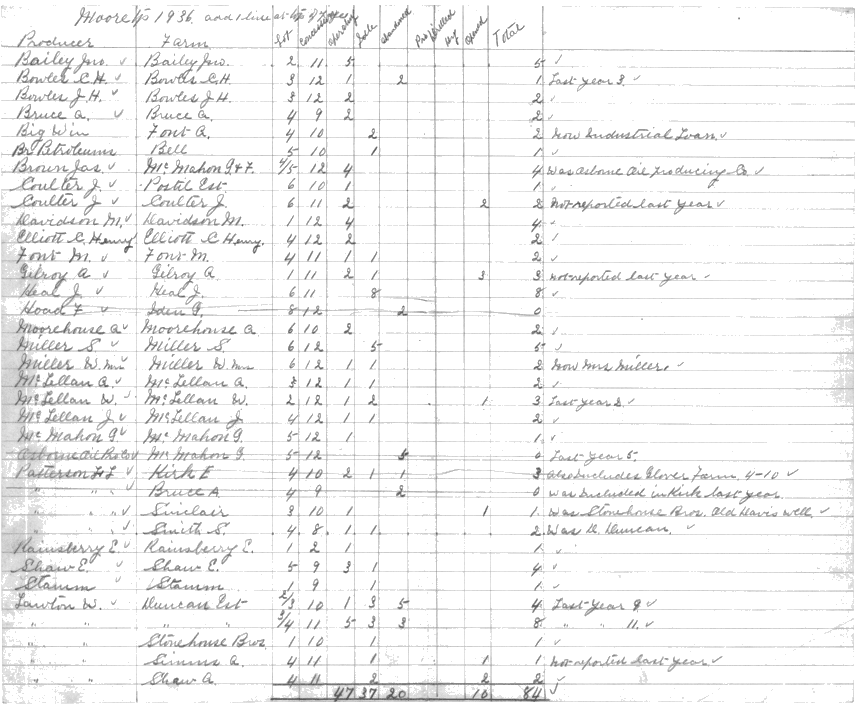 Moore Tp 1936 and 1 line
Producer Farm Lot Concession Operating Idle Abandoned Drilled Dry Total
Bailey Jno. ✓ Bailey Jno. 2 11 5 5 ✓
Bowles C.H. ✓ Bowles C.H. 3 12 1 2 1 Last year 3. ✓
Bowles J.H. ✓ Bowles J.H. 3 12 2 2 ✓
Bruce A. ✓ Bruce A. 4 9 2 2 ✓
Big Win Font A. 4 10 2 2 Now Industrial Loan ✓
Br. Petroleums Bell 5 10 1 1 ✓
Brown Jas. ✓ McMahon G. & F. 4/5 12 4 4 Was Osborne Oil Producing Co ✓
Coulter J. ✓ Postil Est. 6 10 1 1 ✓
Coulter J. ✓ Coulter J. 6 11 2 2 2 Not reported last year ✓
Davidson M. ✓ Davidson M. 1 12 4 4 ✓
Elliott C. Henry ✓ Elliott C. Henry. 4 12 2 2 ✓
Font M. ✓ Font M. 4 11 1 1 2 ✓
Gilroy A ✓ Gilroy A 1 11 2 1 3 3 Not reported last year ✓
Heal J. ✓ Heal J. 6 11 8 8 ✓
Hoad F ✓ Iden G. 8 12 2 0
Moorehouse A ✓ Moorehouse A 6 10 2 2 ✓
Miller S ✓ Miller S 6 12 5 5 ✓
Miller W. Mrs ✓ Miller W. Mrs 6 12 1 1 2 Now Mrs Miller. ✓
McLellan A. ✓ McLellan A. 3 12 1 1 2 ✓
McLellan W. ✓ McLellan W. 2 12 1 2 1 3 Last year 2. ✓
McLellan J. ✓ McLellan J 4 12 1 1 2 ✓
McMahon G. ✓ McMahon G. 5 12 1 1 ✓
Osborne Oil Pro Co ✓ McMahon G. 5 12 5 0 Last year 5.
Patterson ✓ Kirk E 4 10 2 1 1 3 Also includes Glover Farm 4-10 ✓
" " " ✓ Bruce A 4 9 2 0 Was included in Kirk last year.
" " " ✓ Sinclair 3 10 1 1 1 Was Stonehouse Bros. Old Davis well. ✓
" " " ✓ Smith S. 4 8 1 1 2 Was D. Duncan. ✓
Rainsberry E. ✓ Rainsberry E. 1 2 1 1 ✓
Shaw E. ✓ Shaw E. 5 9 3 1 4 ✓
Stamm ✓ Stamm 1 9 1 1 ✓
Lawton W. ✓ Duncan Est 2/3 10 1 3 5 4 Last Year 9 ✓
" " " " 3/4 11 5 3 3 8 " " 11. ✓
" " Stonehouse Bros. 1 10 1 1 ✓
" " Simms A. 4 11 1 1 1 Not reported last year ✓
" " Shaw A. 4 11 2 2 2 ✓
47 37 20 10 84 ✓